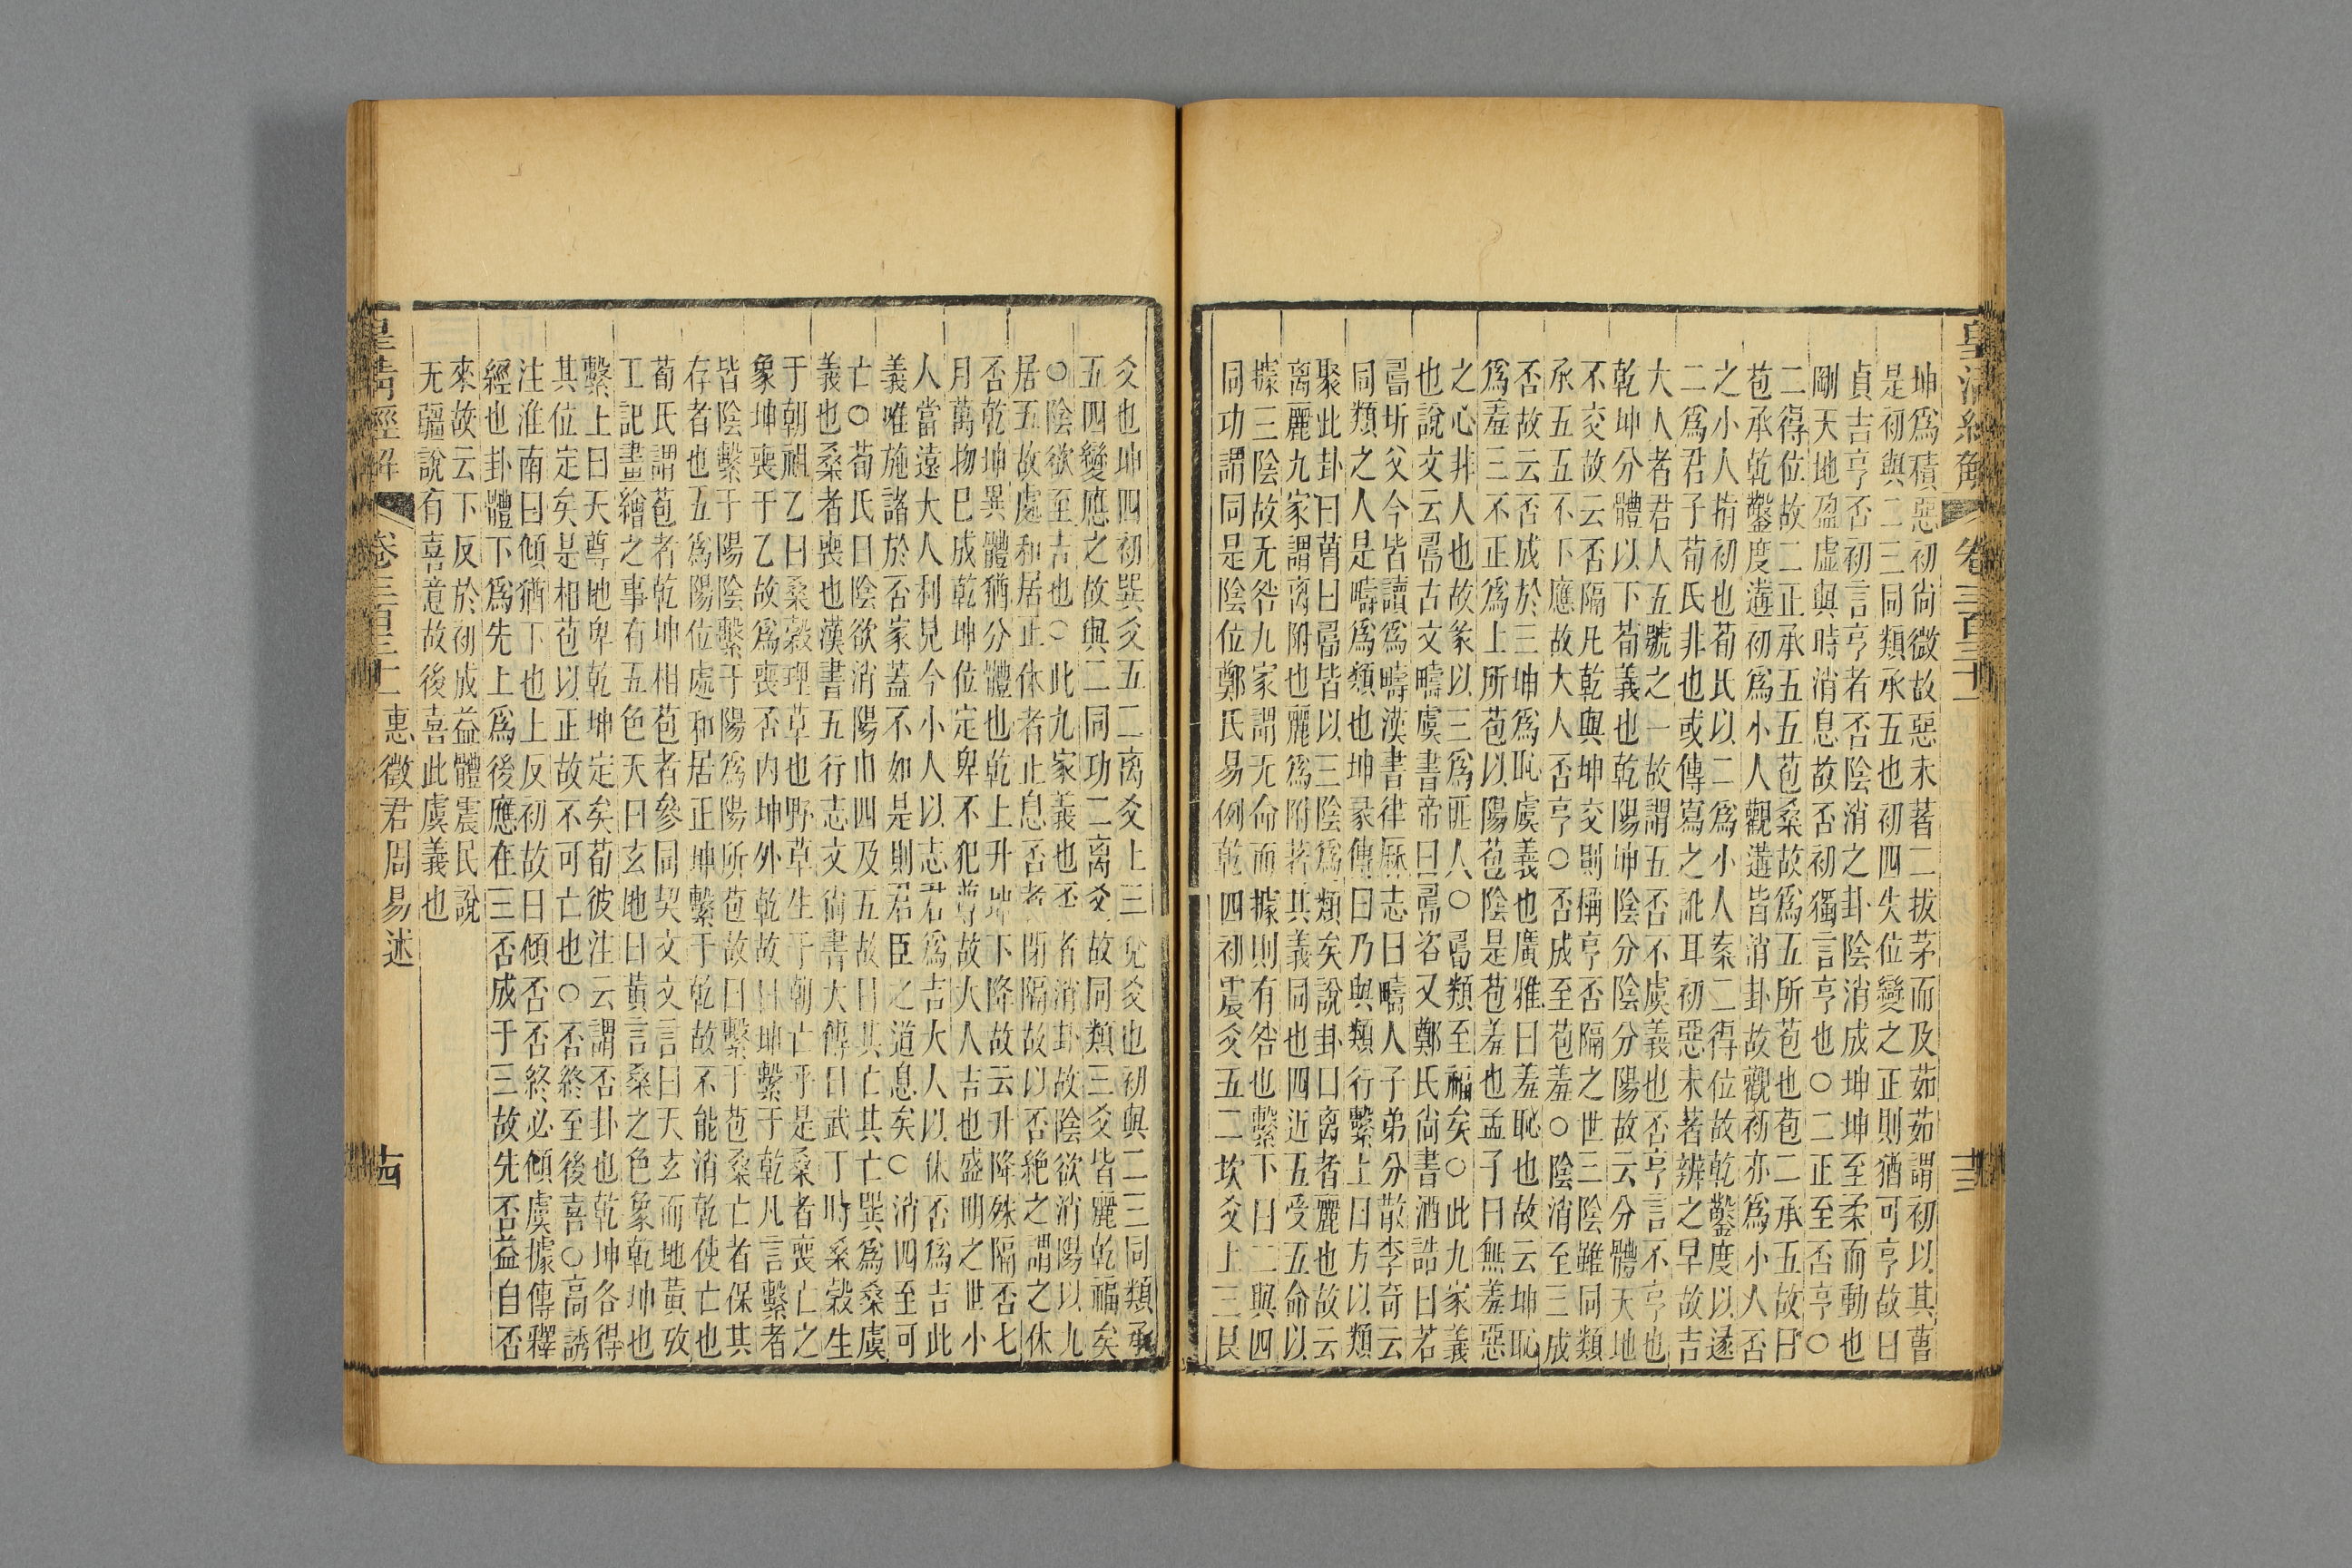 皇清經解
卷三百三十一
十三
坤爲積惡初尙微故惡未著二拔茅而及茹茹謂初以其曹
是初與二三同類承五也初四失位變之正則猶可亨故曰
貞吉亨否初言亨者否陰消之卦陰消成坤坤至柔而動也
剛天地盈虛與時消息故否初獨言亨也○二正至否亨○
二得位故二正承五五苞桑故爲五所苞也苞二承五故曰
苞承乾鑿度遘初爲小人觀遘皆消卦故觀初亦爲小人否
之小人指初也荀氏以二爲小人案二得位故乾鑿度以遂
二爲君子荀氏非也或傳寫之訛耳初惡未著辨之早故吉
大人者君人五號之一故謂五否不虞義也否亨言不亨也
乾坤分體以下荀義也乾陽坤陰分陰分陽故云分體天地
不交故云否隔凡乾與坤交則稱亨否隔之世三陰雖同類
承五五不下應故大人否亨○否成至苞羞○陰消至三成
否故云否成於三坤爲恥虞義也廣雅曰羞恥也故云坤恥
爲羞三不正爲上所苞以陽苞陰是苞羞也孟子曰無羞惡
之心非人也故彖以三爲匪人○𠷎類至福矣○此九家義
也說文云𠷎古文疇虞書帝曰𠷎咨又鄭氏尙書酒誥曰若
𠷎圻父今皆讀爲疇漢書律厤志曰疇人子弟分散李奇云
同類之人是疇爲類也坤彖傳曰乃與類行繫上曰方以類
聚此卦曰萳曰𠷎皆以三陰爲類矣說卦曰离者麗也故云
离麗九家謂离附也麗爲附著其義同也四近五受五命以
據三陰故无咎九家謂无命而據則有咎也繫下曰二與四
同功謂同是陰位鄭氏易例乾四初震爻五二坎爻上三艮
爻也坤四初巽爻五二离爻上三兌爻也初與二三同類承
五四變應之故與二同功二离爻故同類三爻皆麗乾福矣
○陰欲至吉也○此九家義也否者消卦故陰欲消陽以九
居五故處和居正休者止息否者閉隔故以否絶之謂之休
否乾坤異體猶分體也乾上升坤下降故云升降殊隔否七
月萬物巳成乾坤位定卑不犯尊故大人吉也盛明之世小
人當遠大人利見今小人以志君爲吉大人以休否爲吉此
義唯施諸於否家蓋不如是則君臣之道息矣○消四至可
亡○荀氏曰陰欲消陽由四及五故曰其亡其亡巽爲桑虞
義也桑者喪也漢書五行志文尙書大傳曰武丁時桑穀生
于朝祖乙曰桑穀理草也野草生于朝亡乎是桑者喪亡之
象坤喪于乙故爲喪否内坤外乾故曰坤繫于乾凡言繫者
皆陰繫于陽陰繫于陽爲陽所苞故曰繫于苞桑亡者保其
存者也五爲陽位處和居正坤繫于乾故不能消乾使亡也
荀氏謂苞者乾坤相苞者參同契文文言曰天玄而地黃攷
工記畫繪之事有五色天曰玄地曰黃言桑之色象乾坤也
繫上曰天尊地卑乾坤定矣荀彼注云謂否卦也乾坤各得
其位定矣是相苞以正故不可亡也○否終至後喜○高誘
注淮南曰傾猶下也上反初故曰傾否否終必傾虞據傳釋
經也卦體下爲先上爲後應在三否成于三故先否益自否
來故云下反於初成益體震民說
无疆說有喜意故後喜此虞義也
皇清經解
卷三百三十二
惠徵君周易述
十四